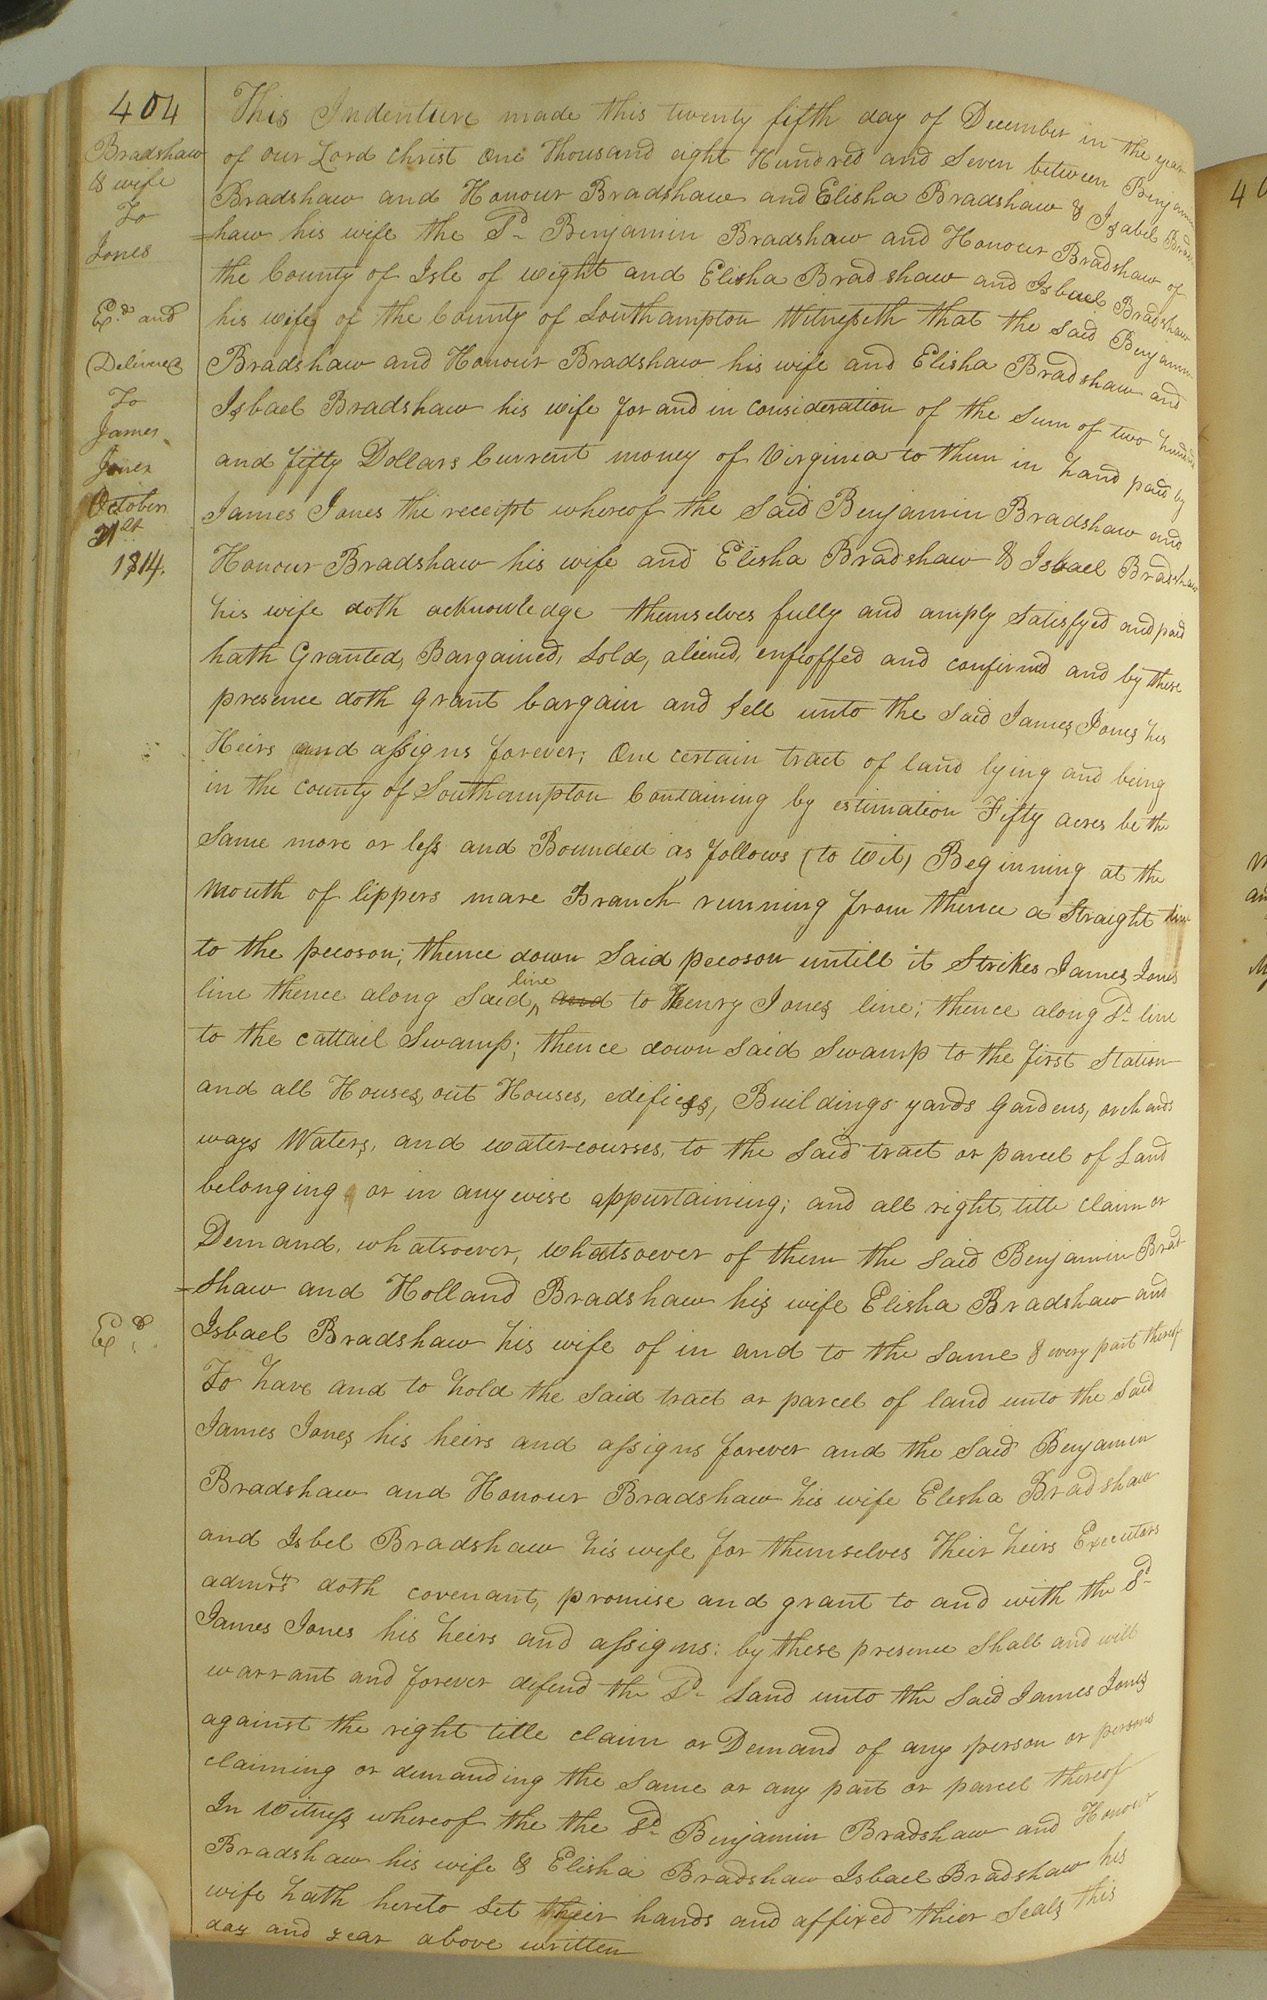 404
Bradshaw
& wife
To
Jones
Exd and
Delivered
To
James
Jones
October
31st
1814.
This Indenture made this twenty fifth day of December in the year
of our Lord Christ One Thousand eight Hundred and Seven between Benjamin
Bradshaw and Honour Bradshaw and Elisha Bradshaw & Isabel Brads
=haw his wife the Sd Benjamin Bradshaw and Honour Bradshaw of
the County of Isle of wight and Elisha Bradshaw and Isbael Bradshaw
his wife of the County of Southampton Witnesseth that the said Benjamin
Bradshaw and Honour Bradshaw his wife and Elisha Bradshaw and
Isbael Bradshaw his wife for and in consideration of the Sum of two hundred
and fifty Dollars Current money of Virginia to them in hand paid by
James Jones the receipt whereof the Said Benjamin Bradshaw and
Honour Bradshaw his wife and Elisha Bradshaw & Isbael Bradshaw
his wife doth acknowledge themselves fully and amply Satisfyed and paid
hath Granted, Bargained, Sold, aliened, enfeoffed and confirmed and by these
presence doth grant bargain and Sell unto the Said James Jones his
Heirs and assigns forever; One certain tract of land lying and being
in the county of Southampton Containing by estimation Fifty acres be the
Same more or less and Bounded as follows (to wit) Beginning at the
Mouth of lippers mare Branch running from thence a Straight line
to the pecoson; thence down Said pecoson untill it Strikes James Jones
line thence along Said line and to Henry Jones line; thence along Sd line
to the cattail Swamp; thence down Said Swamp to the first Station
and all Houses, out Houses, edifices, Buildings yards Gardens, orchards
ways Waters, and watercourses, to the Said tract or parcel of Land
belonging or in any wise appurtaining; and all right, title claim or
Demand, whatsoever, whatsoever of them the Said Benjamin Brad
=shaw and Holland Bradshaw his wife Elisha Bradshaw and
Exd
Isbael Bradshaw his wife of in and to the Same & every part thereof
To have and to hold the Said tract or parcel of land unto the Said
James Jones his heirs and assigns forever and the Said Benjamin
Bradshaw and Honour Bradshaw his wife Elisha Bradshaw
and Isbel Bradshaw his wife for themselves Their heirs Executors
admrs doth covenant, promise and grant to and with the Sd
James Jones his heirs and assigns: by these presence Shall and will
warrant and forever defend the Sd Land unto the Said James Jones
against the right title claim or Demand of any person or persons
claiming or demanding the Same or any part or parcel thereof
In Witness whereof the the Sd Benjamin Bradshaw and Honour
Bradshaw his wife & Elisha Bradshaw Isbael Bradshaw his
wife hath hereto Set their hands and affixed thier Seals this
day and year above written